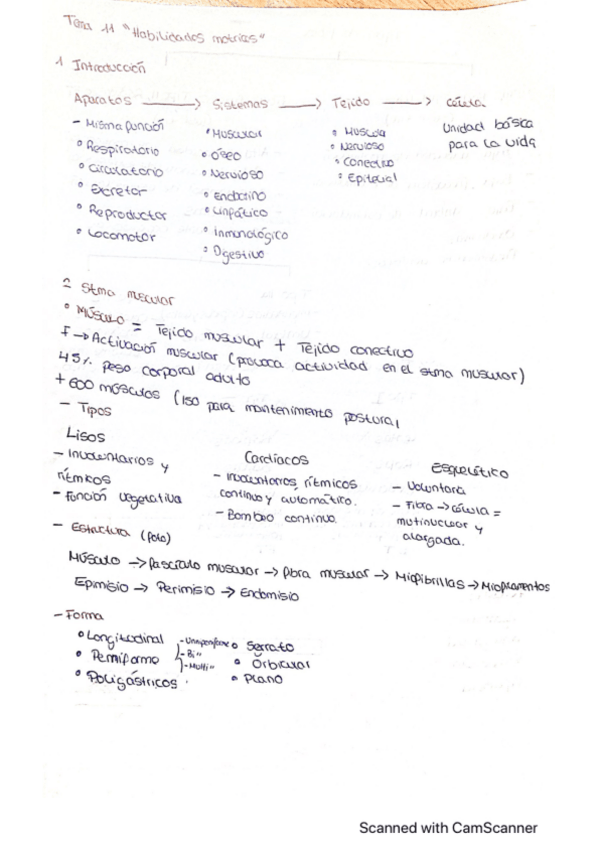 Tema 11 "Habilidades motrices"
1 Introducción
Aparatos → Sistemas → Tejido → célula
- Misma función
° Respiratorio
° Circulatorio
° Excretor
° Reproductor
° Locomotor
° Muscular
° Óseo
° Nervioso
° Endocrino
° Linfático
° Inmunológico
° Digestivo
° Muscular
° Nervioso
° Conectivo
° Epitelial
Unidad básica
para la vida
2 Stma muscular
° Músculo = Tejido muscular + Tejido conectivo
F → Activación muscular (provoca actividad en el stma muscular)
45% peso corporal adulto
+ 600 músculos (150 para mantenimiento postural
- Tipos
Lisos
- Involuntarios y
rítmicos
- Función vegetativa
Cardíacos
- Involuntarios rítmicos
continuo y automático.
- Bombeo continuo.
Esquelético
- Voluntaria
- Fibra → célula =
multinuclear y
alargada.
- Estructura (foto)
Músculo → Fascículo muscular → fibra muscular → Miofibrillas → Miofilamentos
Epimisio → Perimisio → Endomisio
- Forma
° Longitudinal
° Penniforme
° Poligástricos.
- Unipenniforme
- Bi"
- Multi"
° Serrato
° Orbicular
° Plano
Scanned with CamScanner